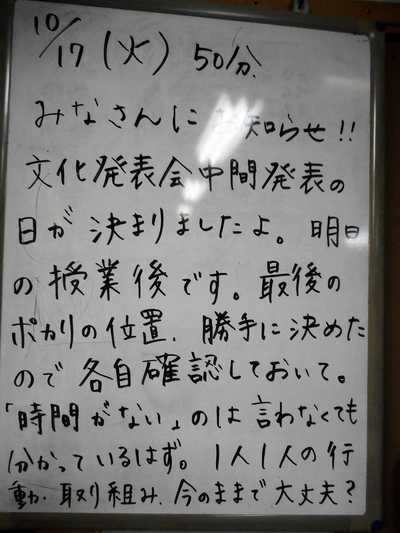 10/17(火) 50分.
みなさんにお知らせ!!
文化発表会中間発表の
日が決まりましたよ。明日
の授業後です。最後の
ポカリの位置、勝手に決めた
ので各自確認しておいて。
「時間がない」のは言わなくても
分かっているはず。1人1人の行
動・取り組み、今のままで大丈夫?